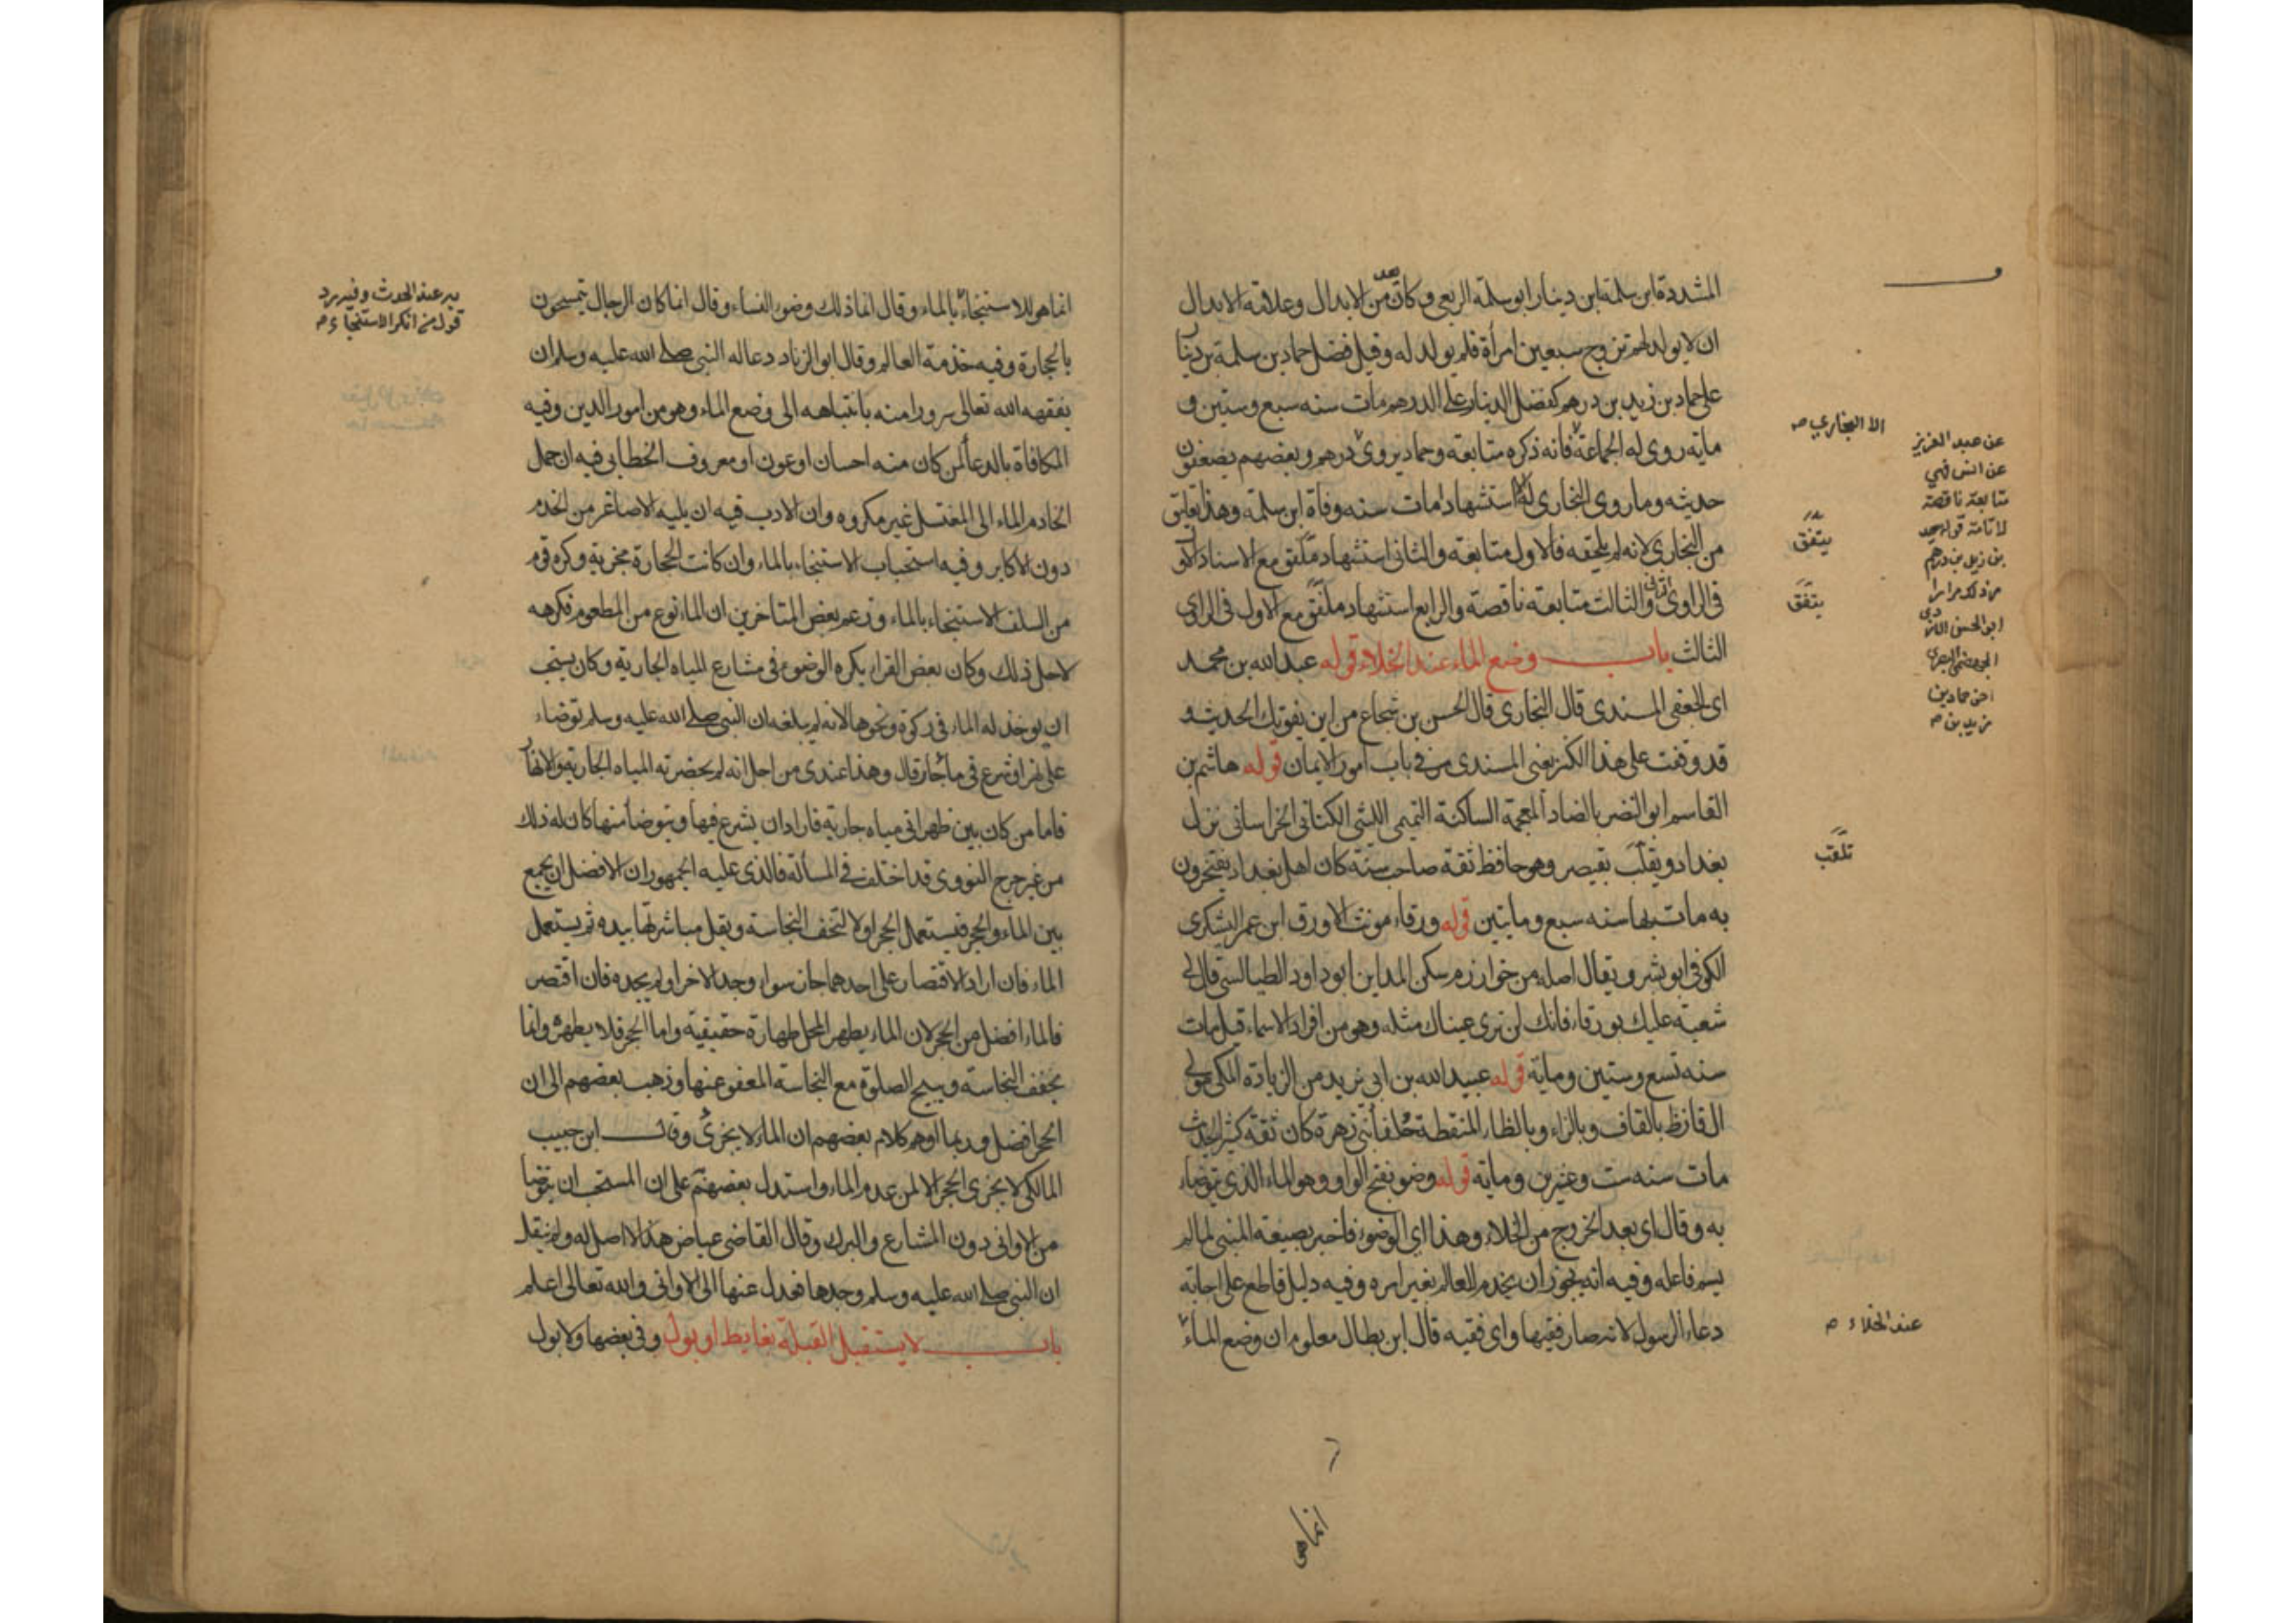 المشددة ابن سلمة ابن دينار ابو سلمة الربعي وكان يعد من الابدال وعلامة الابدال
ان لا يولد لهم تزوج سبعين امرأة فلم يولد له وقيل فضل حماد بن سلمة بن دينار
على حماد بن زيد بن درهم كفضل الدينار على الدرهم مات سنه سبع وستين و
مايه روى له الجماعة فانه ذكره متابعة وحماد يروى درهم وبعضهم يضعفون
حديثه وما روى البخاري له الا استشهادا مات سنه وفاة ابن سلمة وهذا تعليق
من البخاري لانه لم يلحقه فالاول متابعة والثاني استشهاد متفق مع الاسناد الاول
في الراوي والثالث متابعة ناقصة والرابع استشهاد متفق مع الاول في الراوي
الثالث باب وضع الماء عند الخلاء قوله عبد الله بن محمد
اى الجعفي المسندى قال البخارى قال الحسن بن شجاع من اين يفوتك الحديث و
قد وقفت على هذا الكنز يعنى المسندى مر في باب امور الايمان قوله هاشم بن
القاسم ابو النضر بالضاد المعجمة الساكنة التميمي الليثى الكناني الخراساني نزل
بغداد ويقلب بقيصر وهو حافظ ثقة صاحب سنة كان اهل بغداد يفتخرون
به مات بها سنه سبع ومايتين قوله ورقاء مونث الاورق ابن عمر اليشكري
الكوفي ابو بشر ويقال اصله من خوارزم سكن المداين ابو داود الطيالسى قال لى
شعبة عليك بورقاء فانك لن ترى عيناك مثله وهو من افراد الاسماء قيل مات
سنه تسع وستين ومايه قوله عبيد الله بن ابى يزيد من الزيادة المكى مولى
ال قارظ بالقاف وبالراء وبالظاء المنقطة حلفاء بنى زهرة كان ثقة كثير الحديث
مات سنه ست وعشرين ومايه قوله وضو بفتح الواو وهو الماء الذى يتوضاء
به وقال اى بعد الخروج من الخلاء وهذا اى الوضوء فاخبر بصيغة المبنى لما لم
يسم فاعله وفيه انه يجوز ان يخدم العالم بغير امره وفيه دليل قاطع على اجابه
دعاء الرسول لانه صار فقيها واى فقيه قال ابن بطال معلوم ان وضع الماء
الا البخاري صح
عن عبد العزيز
عن انس فهي
متابعة ناقصة
لا تامة
بن زيد بن درهم
يتفق
يتفق
تلقب
عند الخلاء
انما هو للاستنجاء بالماء وقال انما ذلك وضوء النساء وقال انما كان الرجال يتمسحون
بالحجارة وفيه خدمة العالم وقال ابو الزناد دعا له النبى صلى الله عليه وسلم ان
يفقهه الله تعالى سرورا منه بانتباهه الى وضع الماء وهو من امور الدين وفيه
المكافاة بالدعا لمن كان منه احسان او عون او معروف الخطابي فيه ان حمل
الخادم الماء الى المغتسل غير مكروه وان الادب فيه ان يليه الاصاغر من الخدم
دون الاكابر وفيه استحباب الاستنجاء بالماء وان كانت الحجارة مجزية وكره قوم
من السلف الاستنجاء بالماء وزعم بعض المتاخرين ان الماء نوع من المطعوم فكرهه
لاجل ذلك وكان بعض القراء يكره الوضوء في مشارع المياه الجارية وكان يستحب
ان يوخذ له الماء في ركوة ونحوها لانه لم يبلغه ان النبي صلى الله عليه وسلم توضاء
على نهر او شرع في ماء جار قال وهذا عندى من اجل انه لم يحضرته المياه الجارية والانهار
فاما من كان بين ظهرانى مياه جارية فاراد ان يشرع فيها ويتوضأ منها كان له ذلك
من غير حرج النووى قد اختلف في المسألة فالذى عليه الجمهور ان الافضل ان يجمع
بين الماء والحجر فيستعمل الحجر اولا لتخف النجاسة ويقل مباشرتها بيده ثم يستعمل
الماء فان اراد الاقتصار على احدهما جاز سواء وجد الاخر او لم يجده فان اقتصر
فالماء افضل من الحجر لان الماء يطهر المحل طهارة حقيقية واما الحجر فلا يطهره وانما
يخفف النجاسة ويبيح الصلوة مع النجاسة المعفو عنها وذهب بعضهم الى ان
الحجر افضل وربما اوهم كلام بعضهم ان الماء لا يجزى وقال ابن حبيب
المالكي لا يجزى الحجر الا لمن عدم الماء واستدل بعضهم على ان المستحب ان يتوضا
من الاوانى دون المشارع والبرك وقال القاضى عياض هذا لا اصل له ولم ينقل
ان النبى صلى الله عليه وسلم وجدها فعدل عنها الى الاوانى والله تعالى اعلم
باب لا يستقبل القبلة بغايط او بول وفي بعضها ولا بول
عند الحدث وفيه رد
قول من انكر الاستنجاء